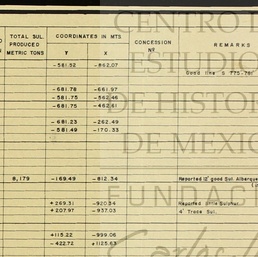 TOTAL SUL. PRODUCED METRIC TONS
COORDINATES IN MTS
Y X
CONCESSION Nº
REMARKS
-581.52 -862.07
-681.78 -661.97
-581.75 -562.46
-681.75 -462.61
-681.23 -262.49
-581.49 -170.33
8,179 -169.49 -812.34 Reported 12' good Sul.
+269.31 -920.34 Reported little Sulphur.
+207.97 -937.03 4' Trace Sul.
+115.22 -999.06
-422.72 +1125.63
CENTRO
ESTUDIO
DE HISTOR
DE MEXIC
FUNDAC
Carlos